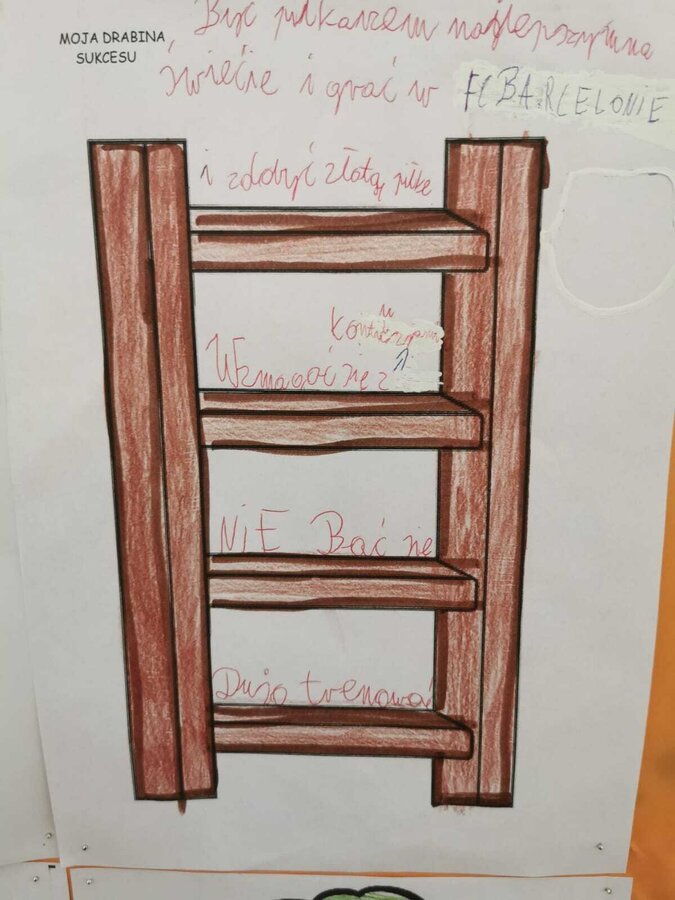 MOJA DRABINA
SUKCESU
Być piłkarzem najlepszym na
świecie i grać w FC BARCELONIE
i zdobyć złotą piłkę
Wzmagać się z
NIE Bać się
Dużo trenować